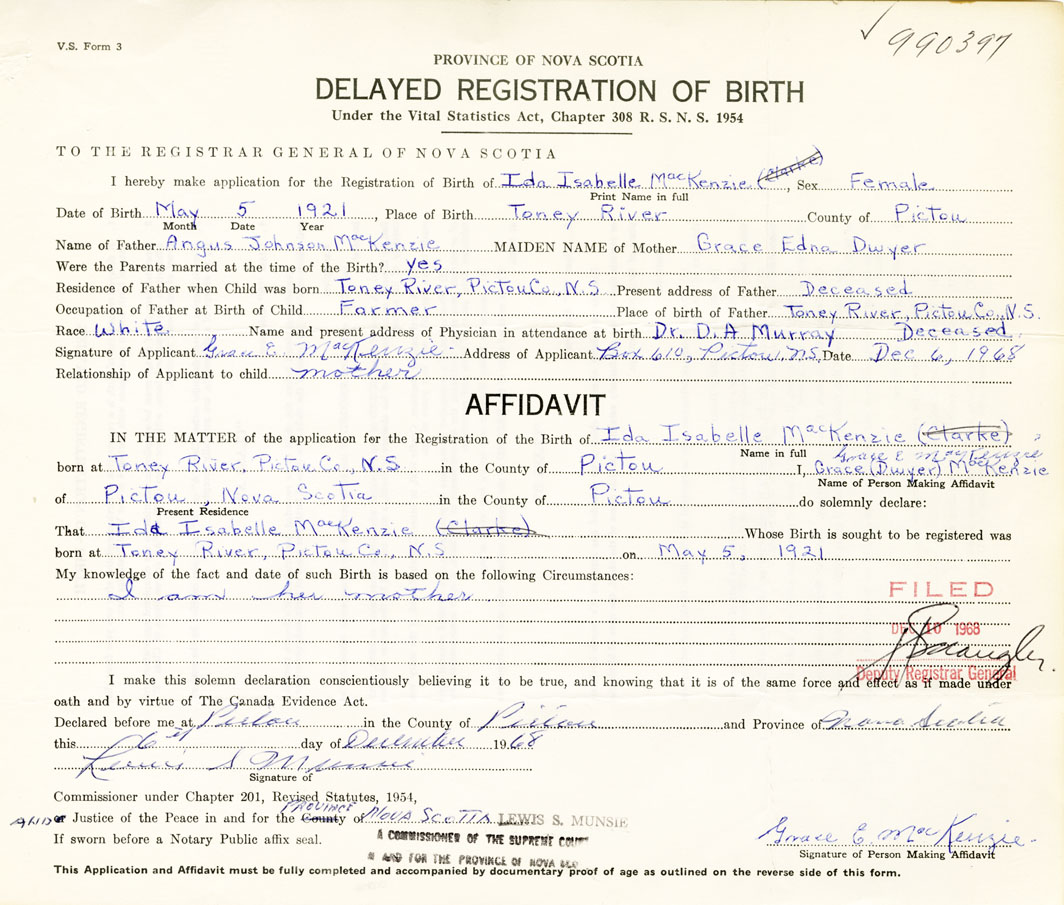 V.S. Form 3
✓ 990397
PROVINCE OF NOVA SCOTIA
DELAYED REGISTRATION OF BIRTH
Under the Vital Statistics Act, Chapter 308 R. S. N. S. 1954
TO THE REGISTRAR GENERAL OF NOVA SCOTIA
I hereby make application for the Registration of Birth of Ida Isabelle MacKenzie (Clarke), Sex Female
Print Name in full
Date of Birth May 5 1921, Place of Birth Toney River County of Pictou
Month Date Year
Name of Father Angus Johnson MacKenzie MAIDEN NAME of Mother Grace Edna Dwyer
Were the Parents married at the time of the Birth? yes
Residence of Father when Child was born Toney River, Pictou Co., N.S. Present address of Father Deceased
Occupation of Father at Birth of Child Farmer Place of birth of Father Toney River, Pictou Co., N.S.
Race White Name and present address of Physician in attendance at birth Dr. D. A Murray Deceased
Signature of Applicant Grace E. MacKenzie Address of Applicant Box 610, Pictou, NS, Date Dec 6, 1968
Relationship of Applicant to child mother
AFFIDAVIT
IN THE MATTER of the application for the Registration of the Birth of Ida Isabelle MacKenzie (Clarke)
Name in full Grace E MacKenzie
born at Toney River, Pictou Co., N.S. in the County of Pictou I, Grace (Dwyer) MacKenzie
Name of Person Making Affidavit
of Pictou, Nova Scotia in the County of Pictou do solemnly declare:
Present Residence
That Ida Isabelle MacKenzie (Clarke) Whose Birth is sought to be registered was
born at Toney River, Pictou Co., N.S on May 5, 1921
My knowledge of the fact and date of such Birth is based on the following Circumstances:
I am her mother
FILED
DEC 10 1968
Deputy Registrar General
I make this solemn declaration conscientiously believing it to be true, and knowing that it is of the same force and effect as if made under
oath and by virtue of The Canada Evidence Act.
Declared before me at Pictou in the County of Pictou and Province of Nova Scotia
this 6th day of December 1968
Lewis S Munsie
Signature of
Commissioner under Chapter 201, Revised Statutes, 1954,
PROVINCE
AND or Justice of the Peace in and for the County of NOVA SCOTIA LEWIS S. MUNSIE
If sworn before a Notary Public affix seal.
A COMMISSIONER OF THE SUPREME COURT
AND FOR THE PROVINCE OF NOVA
Grace E. MacKenzie
Signature of Person Making Affidavit
This Application and Affidavit must be fully completed and accompanied by documentary proof of age as outlined on the reverse side of this form.